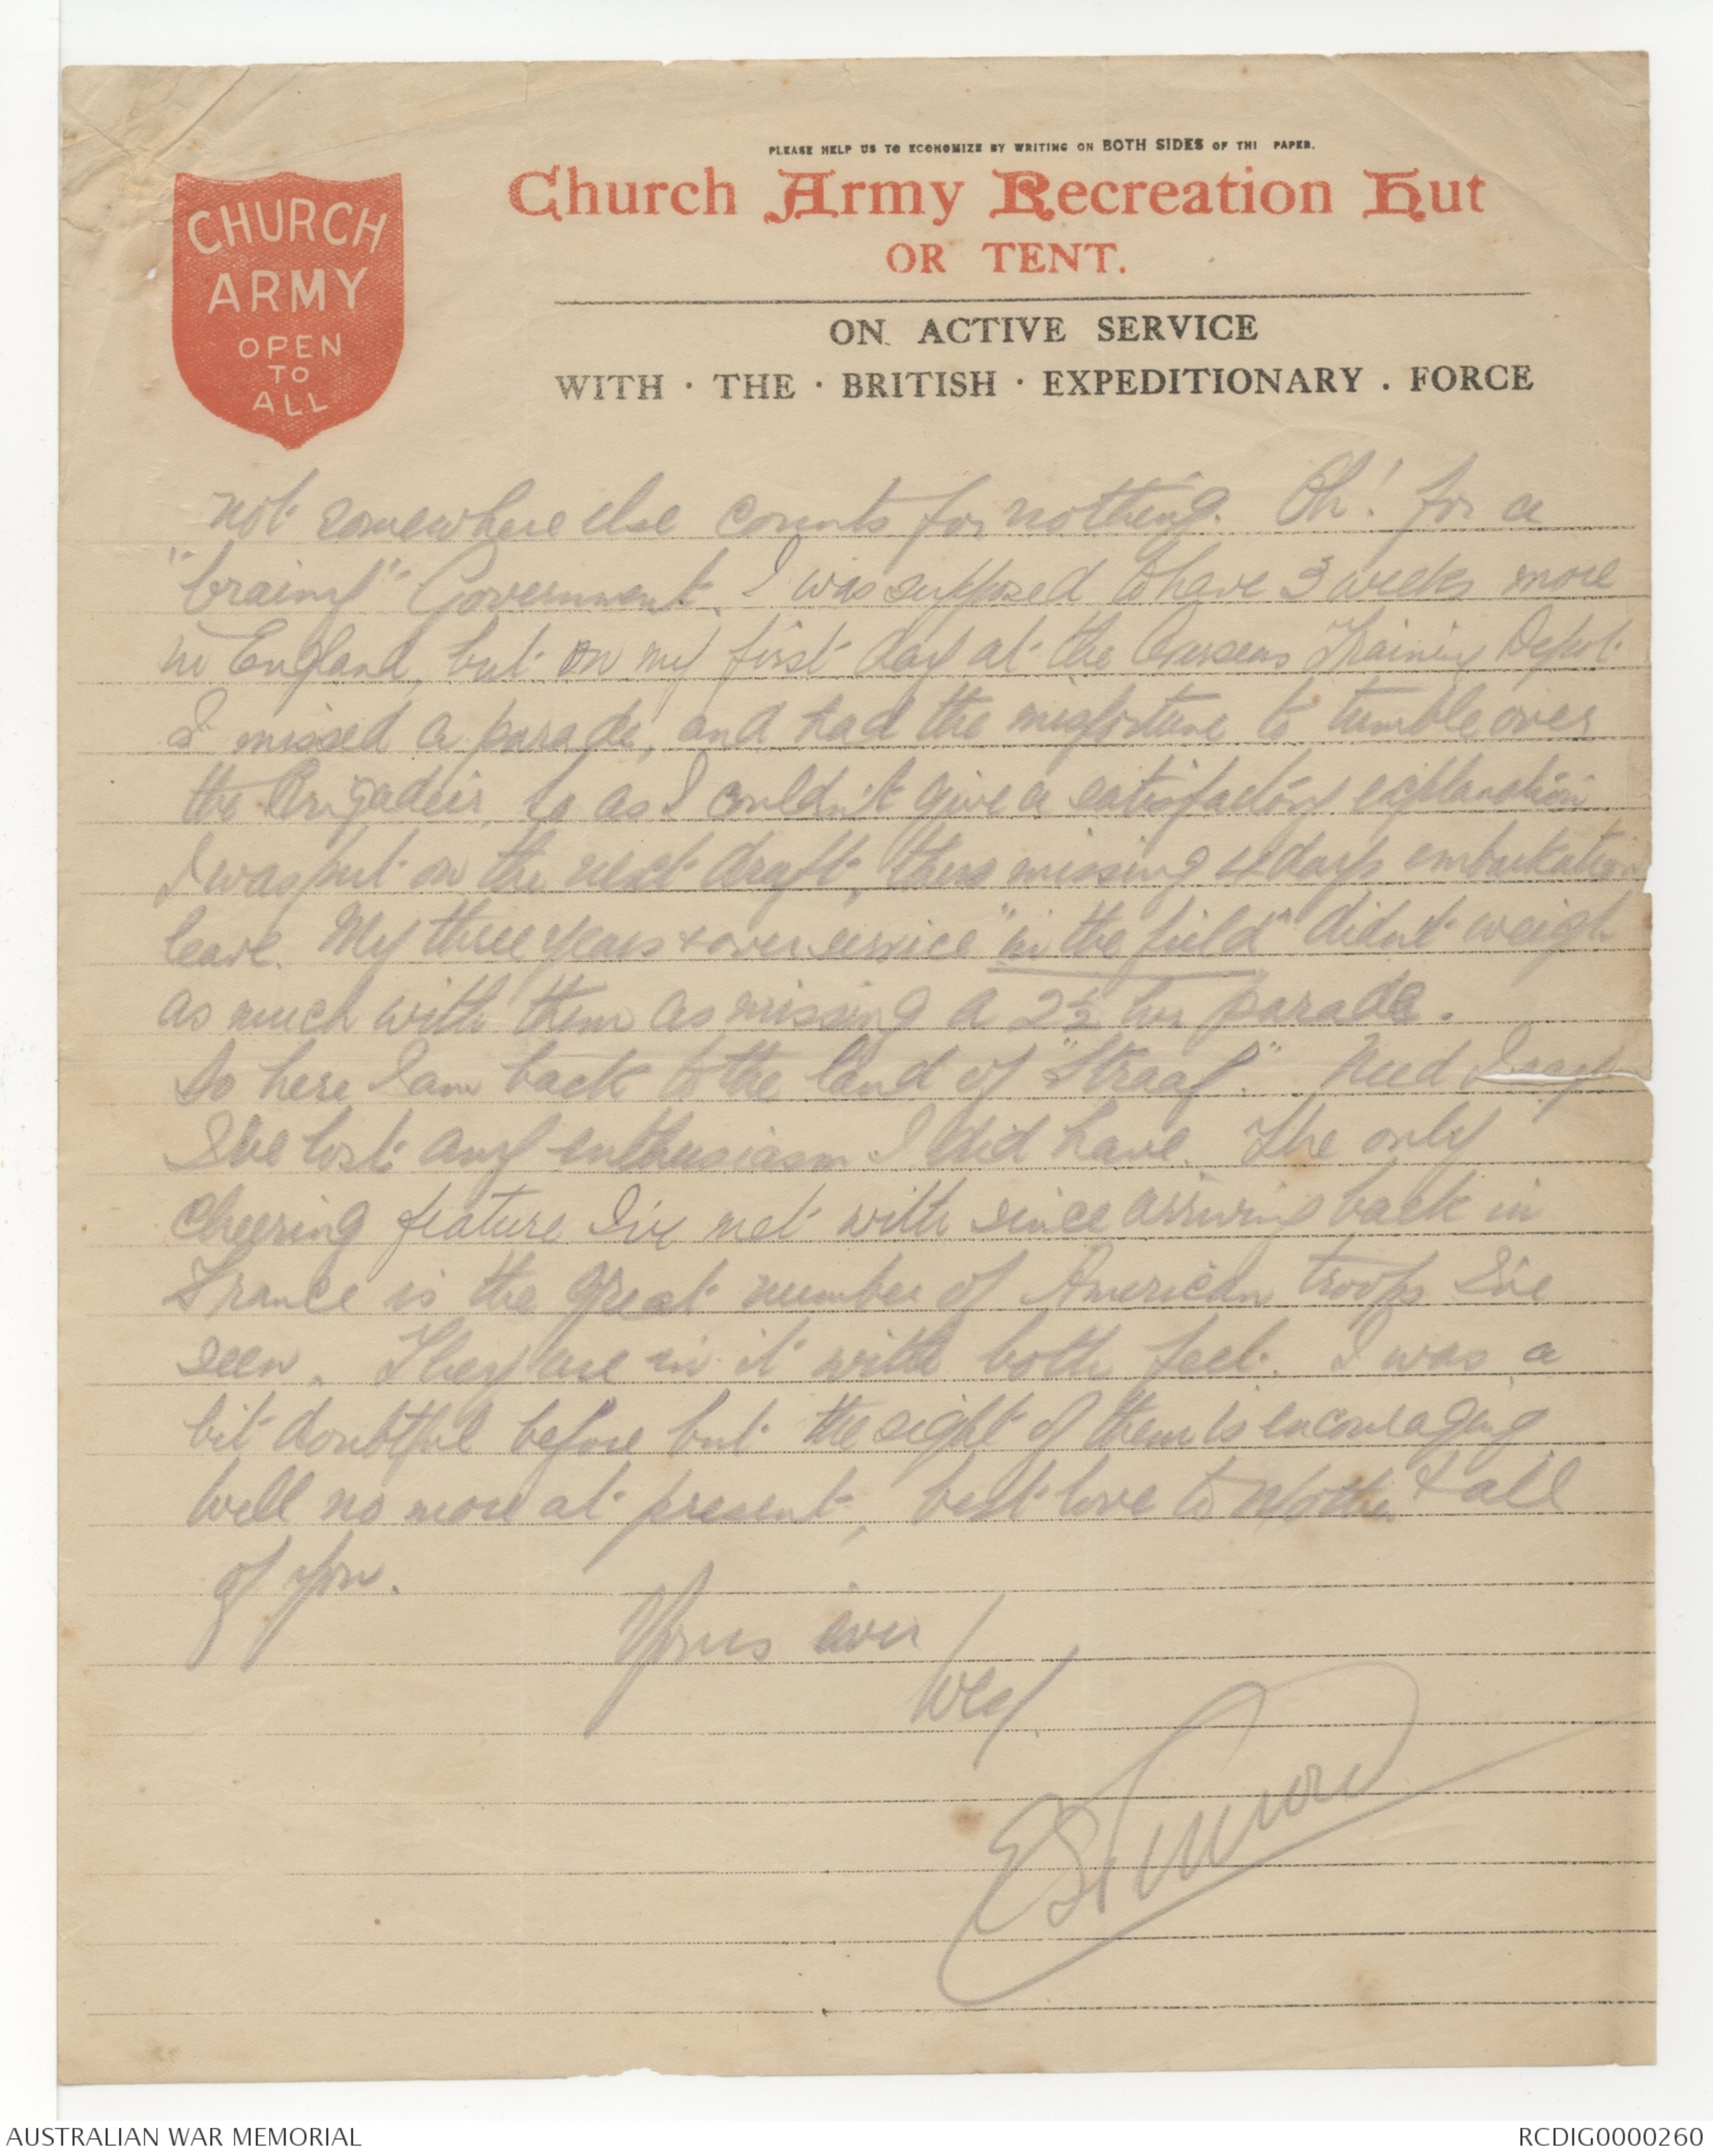 PLEASE HELP US TO ECONOMIZE BY WRITING ON BOTH SIDES OF THI PAPER.
Church Army Recreation Hut
OR TENT.
CHURCH
ARMY
OPEN
TO
ALL
ON ACTIVE SERVICE
WITH · THE · BRITISH · EXPEDITIONARY . FORCE
not somewhere else counts for nothing. Oh! for a
"brainy" Government. I was supposed to have 3 weeks more
in England, but on my first day at the Overseas Training Depot
I missed a parade, and had the misfortune to tumble over
the Brigadeir, so as I couldn't give a satisfactory explanation
I was put on the next draft, thus missing 4 days embarkation
leave. My three years & over service "in the field" didn't weigh
as much with them as missing a 2½ hr parade.
So here I am back to the land of "Straaf". Need I say
I've lost any enthusiasm I did have. The only
cheering feature I've met with since arriving back in
France is the great number of American troops I've
seen. They are in it with both feet. I was a
bit doubtful before but the sight of them is encouraging
Well no more at present, best love to Mother & all
of you.
Yours ever
Wey.
AUSTRALIAN WAR MEMORIAL
RCDIG0000260